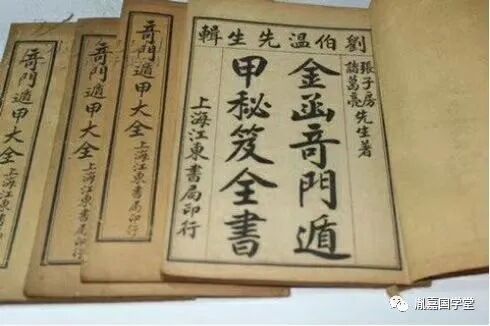 劉伯温先生輯
張子房
諸葛亮
先生著
金函竒門遁
甲秘笈全書
上海江東書局印行
竒門遁甲大全
上海江東書局印行
竒門遁甲大全
上海江東書局印行
竒門遁甲大全
上海江東書局印行
胤嘉国学堂